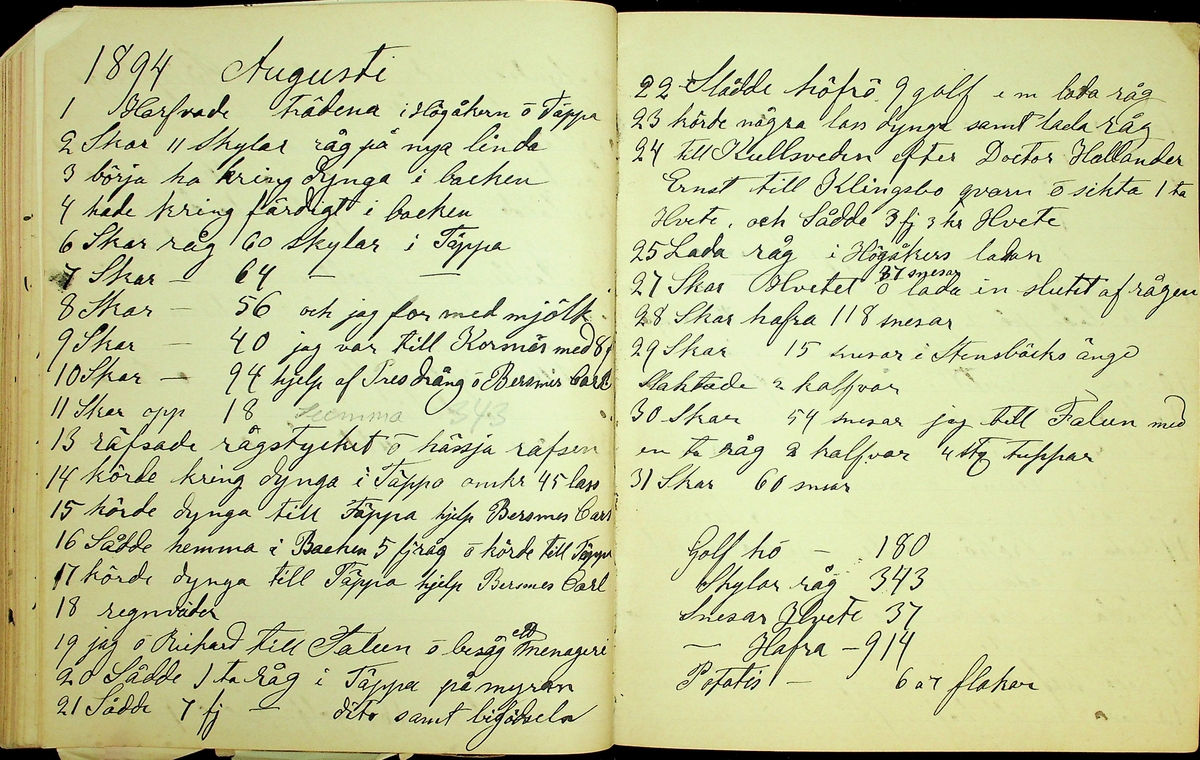 1894 Augusti
1 Harfvade trädena i Högåkern o Täppa
2 Skar 11 Skylar råg på nya linda
3 börja ha kring dynga i backen
4 hade kring färdigt i backen
6 Skar råg 60 skylar i Täppa
7 Skar — 64 — —
8 Skar — 56 och jag for med mjölk
9 Skar — 40 jag var till Kornäs med
10 Skar — 94 hjelp af Tres dräng o Bersmes Carl
11 Skar opp 18 Summa 343
13 räfsade rågstycket o hässja räfsen
14 körde kring dynga i Täppa omkr 45 lass
15 körde dynga till Täppa hjelp Bersmes Carl
16 Sådde hemma i Backen 5 fj råg o körde till Täppa
17 körde dynga till Täppa hjelp Bersmes Carl
18 regnväder
19 jag o Richard till Falun o besåg ett menageri
20 Sådde 1 ta råg i Täppa på myran
21 Sådde 7 fj — dito samt
22 Slådde höfrö 9 golf e m lada råg
23 körde några lass dynga samt lada råg
24 till Kullsveden efter Doctor Hallander
Ernst till Klingsbo qvarn o sikta 1 ta
Hvete, och Sådde 3 fj 3 kr Hvete
25 Lada råg i Högåkers ladan
27 Skar Hvetet 37 snesar o lada in slutet af rågen
28 Skar hafra 118 snesar
29 Skar 15 snesar i Stensbäcks änge
Slaktade 2 kalfvar
30 Skar 54 snesar jag till Falun med
en ta råg 2 kalfvar 4 stg tuppar
31 Skar 60 snesar
Golf hö — 180
Skylar råg 343
Snesar Hvete 37
— Hafra — 914
Potatis — 6 a 7 flakar